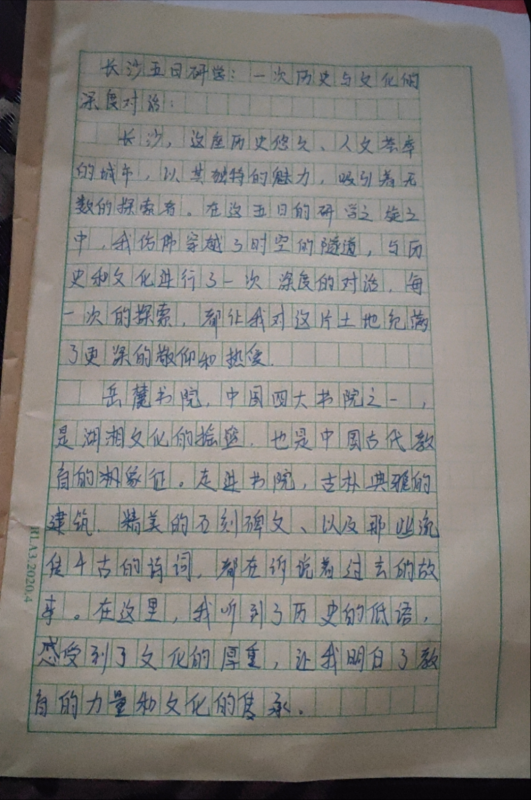 长沙五日研学：一次历史与文化的
深度对话：
长沙，这座历史悠久、人文荟萃
的城市，以其独特的魅力，吸引着无
数的探索者。在这五日的研学之旅之
中，我仿佛穿越了时空的隧道，与历
史和文化进行了一次深度的对话，每
一次的探索，都让我对这片土地充满
了更深的敬仰和热爱.
岳麓书院，中国四大书院之一，
是湖湘文化的摇篮.也是中国古代教
育的象征。走进书院，古朴典雅的
建筑.精美的石刻碑文、以及那些流
传千古的诗词，都在诉说着过去的故
事。在这里，我听到了历史的低语，
感受到了文化的厚重，让我明白了教
育的力量和文化的传承。
RLA3.2020.4